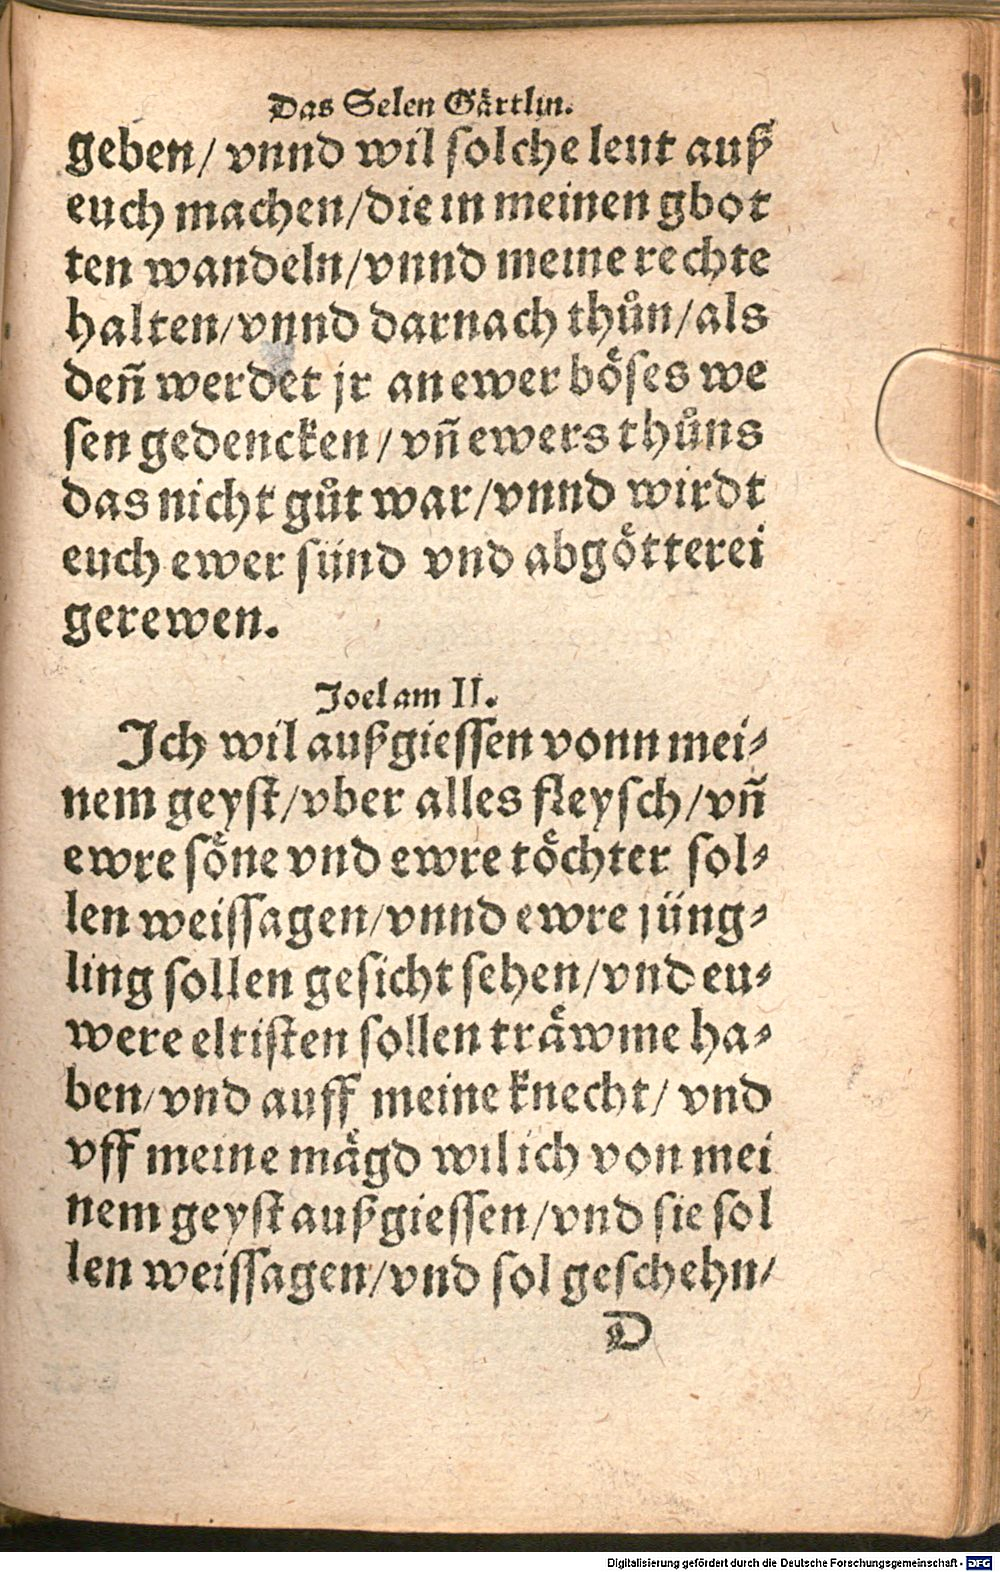 Das Selen Gärtlin.
geben/ vnnd wil solche leut auß
euch machen/die in meinen gbot
ten wandeln/vnnd meine rechte
halten/vnnd darnach thůn/als
deñ werdet jr an ewer böses we
sen gedencken/ vñ ewers thůns
das nicht gůt war/vnnd wirdt
euch ewer sünd vnd abgötterei
gerewen.
Joel am II.
Ich wil außgiessen vonn mei⸗
nem geyst/vber alles fleysch/vñ
ewre söne vnd ewre töchter sol⸗
len weissagen/vnnd ewre jüng⸗
ling sollen gesicht sehen/vnd eu⸗
were eltisten sollen träwme ha⸗
ben/vnd auff meine knecht/ vnd
vff meine mägd wil ich von mei
nem geyst außgiessen/vnd sie sol
len weissagen/vnd sol geschehn/
D
Digitalisierung gefördert durch die Deutsche Forschungsgemeinschaft - DFG